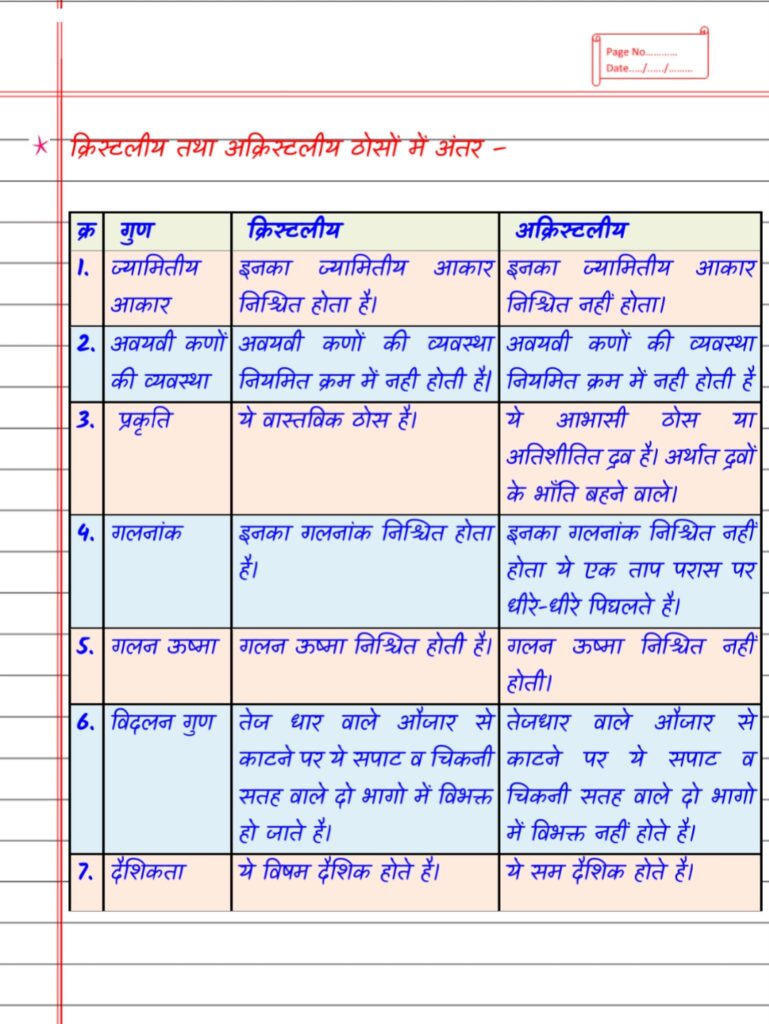 Page No............
Date...../....../.........
* क्रिस्टलीय तथा अक्रिस्टलीय ठोसों में अंतर -
क्र गुण क्रिस्टलीय अक्रिस्टलीय
1. ज्यामितीय इनका ज्यामितीय आकार इनका ज्यामितीय आकार
आकार निश्चित होता है। निश्चित नहीं होता।
2. अवयवी कणों अवयवी कणों की व्यवस्था अवयवी कणों की व्यवस्था
की व्यवस्था नियमित क्रम में नही होती है| नियमित क्रम में नही होती है
3. प्रकृति ये वास्तविक ठोस है। ये आभासी ठोस या
अतिशीतित द्रव है। अर्थात द्रवों
के भाँति बहने वाले।
4. गलनांक इनका गलनांक निश्चित होता इनका गलनांक निश्चित नहीं
है। होता ये एक ताप परास पर
धीरे-धीरे पिघलते है।
5. गलन ऊष्मा गलन ऊष्मा निश्चित होती है। गलन ऊष्मा निश्चित नहीं
होती।
6. विदलन गुण तेज धार वाले औजार से तेजधार वाले औजार से
काटने पर ये सपाट व चिकनी काटने पर ये सपाट व
सतह वाले दो भागो में विभक्त चिकनी सतह वाले दो भागो
हो जाते है। में विभक्त नहीं होते है।
7. दैशिकता ये विषम दैशिक होते है। ये सम दैशिक होते है।